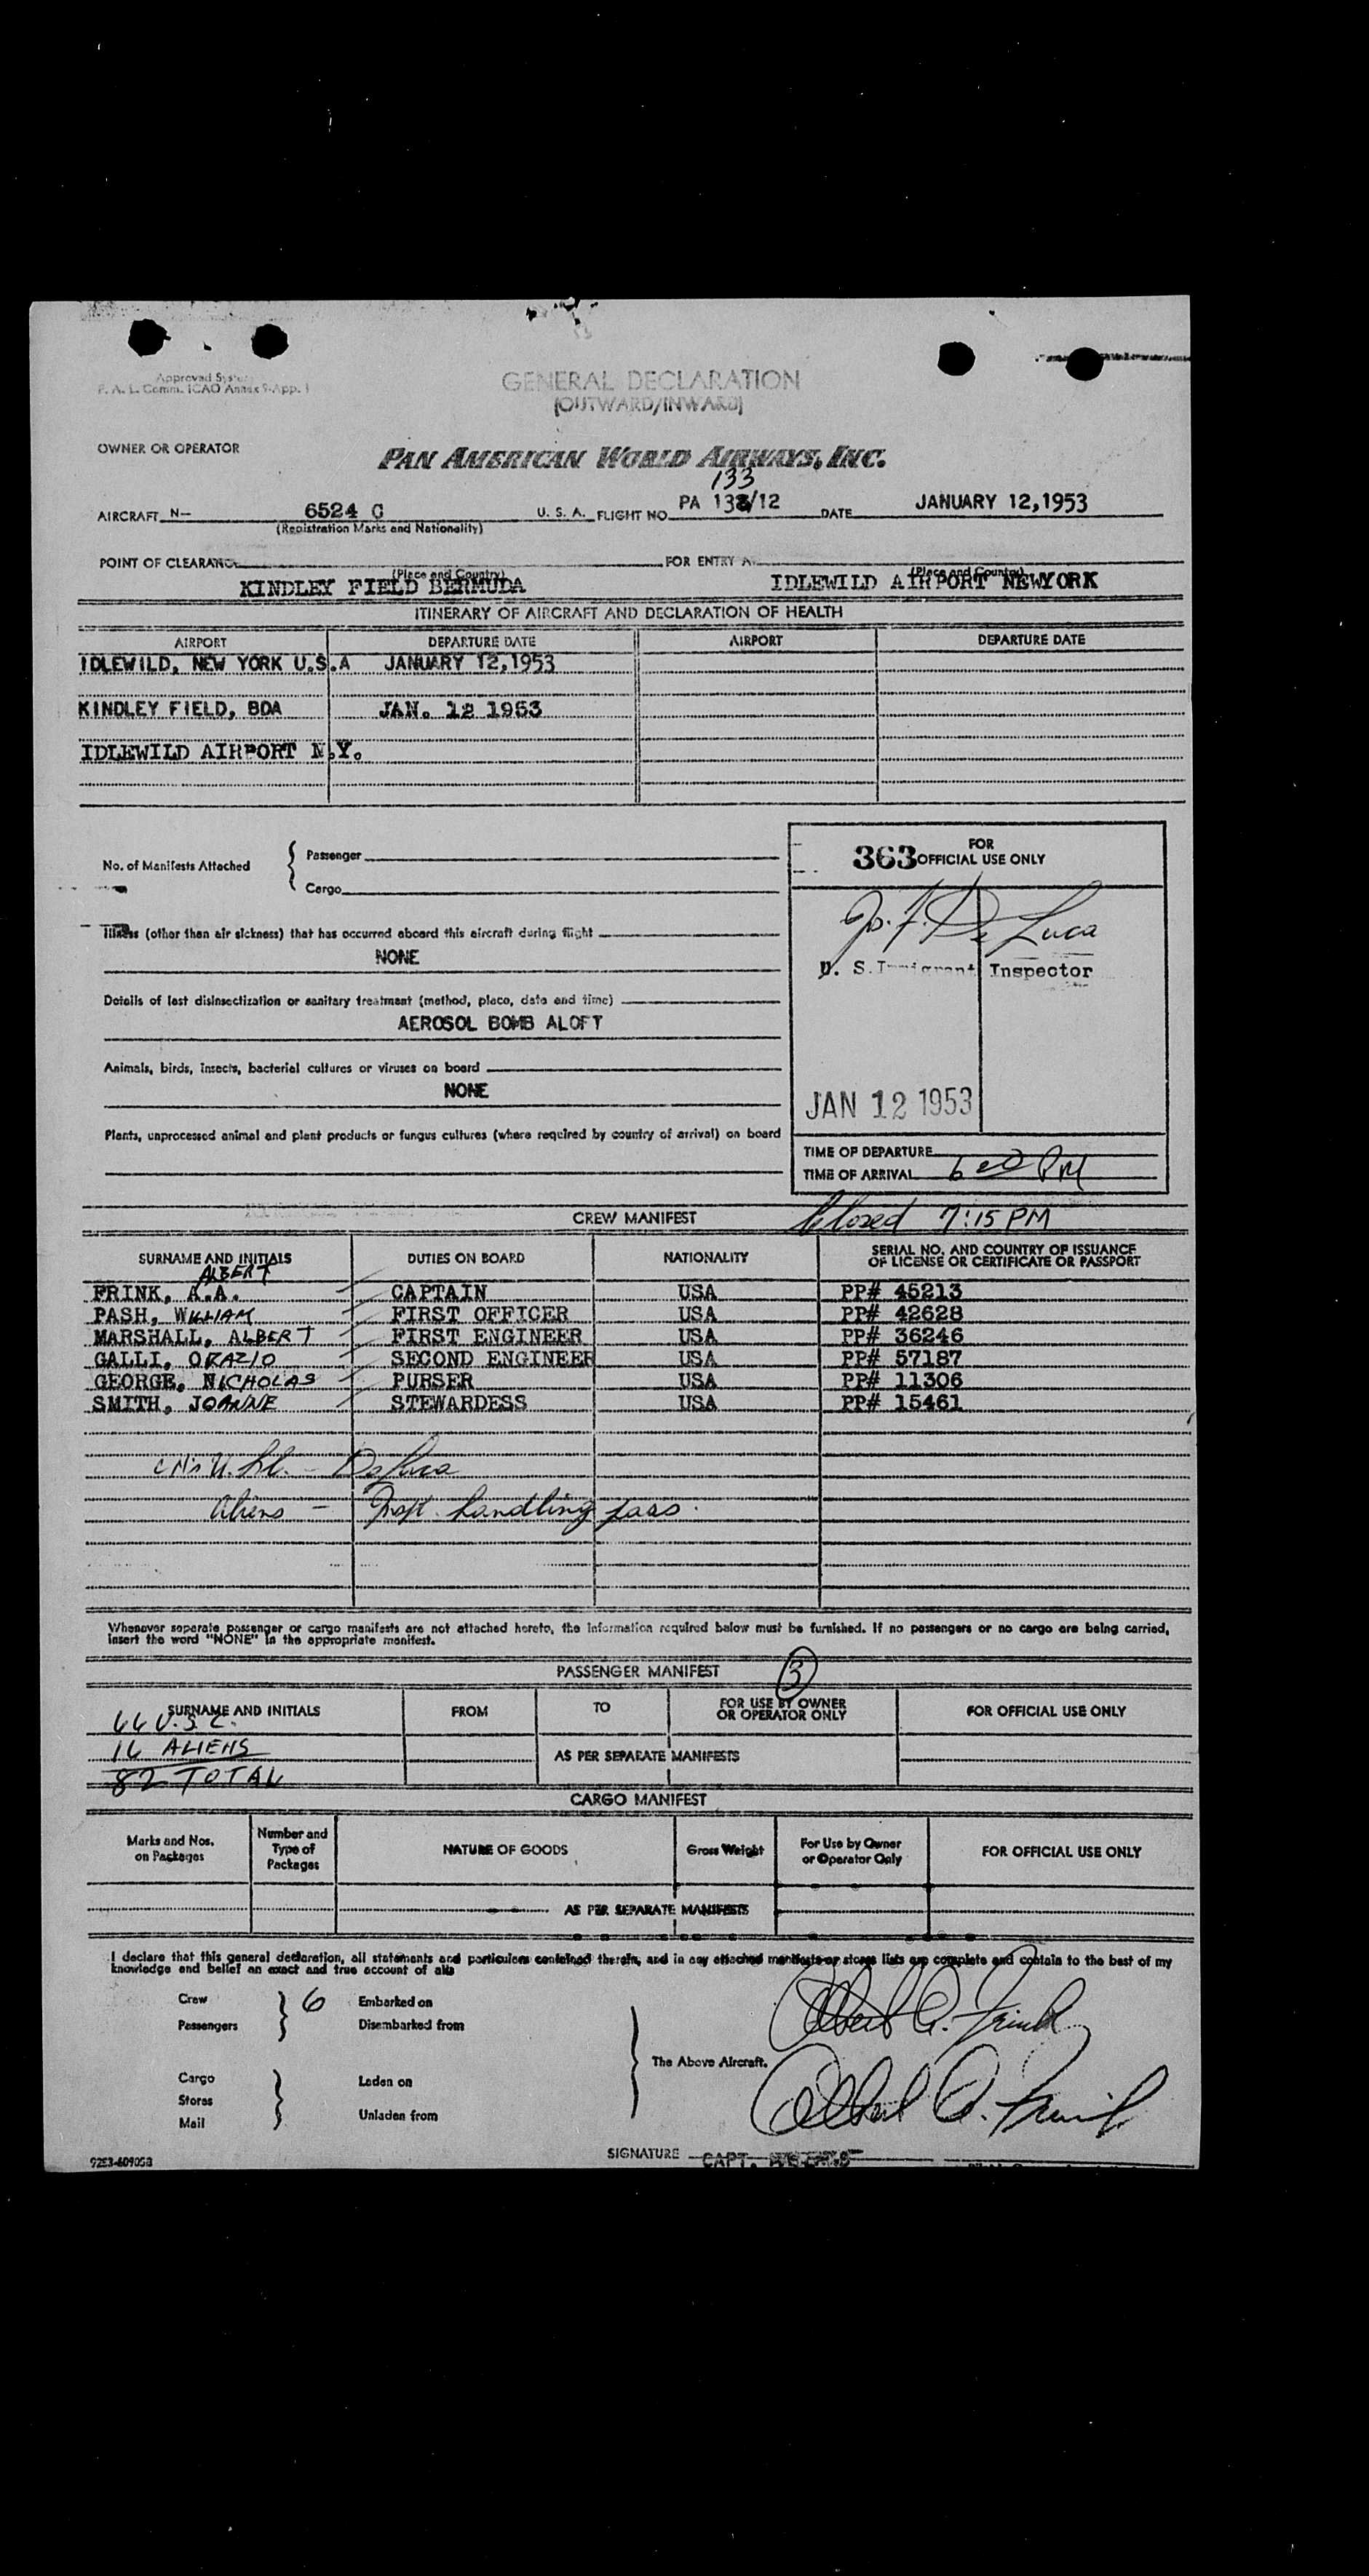 Approved System
F. A. L. Comm. ICAO Annex 9-App. 1
GENERAL DECLARATION
(OUTWARD/INWARD)
OWNER OR OPERATOR
PAN AMERICAN WORLD AIRWAYS, INC.
133
AIRCRAFT N— 6524 C U. S. A. FLIGHT NO. PA 138/12 DATE JANUARY 12,1953
(Registration Marks and Nationality)
POINT OF CLEARANCE FOR ENTRY AT
(Place and Country) (Place and Country)
KINDLEY FIELD BERMUDA IDLEWILD AIRPORT NEWYORK
ITINERARY OF AIRCRAFT AND DECLARATION OF HEALTH
AIRPORT DEPARTURE DATE AIRPORT DEPARTURE DATE
IDLEWILD, NEW YORK U.S.A JANUARY 12,1953
KINDLEY FIELD, BDA JAN. 12 1953
IDLEWILD AIRPORT N.Y.
No. of Manifests Attached
Passenger
Cargo
363 FOR OFFICIAL USE ONLY
Jo. F. De Luca
U. S. Immigrant Inspector
JAN 12 1953
TIME OF DEPARTURE
TIME OF ARRIVAL 6 00 PM
Illness (other than air sickness) that has occurred aboard this aircraft during flight
NONE
Details of last disinsectization or sanitary treatment (method, place, date and time)
AEROSOL BOMB ALOFT
Animals, birds, insects, bacterial cultures or viruses on board
NONE
Plants, unprocessed animal and plant products or fungus cultures (where required by country of arrival) on board
CREW MANIFEST Closed 7:15 PM
SURNAME AND INITIALS DUTIES ON BOARD NATIONALITY SERIAL NO. AND COUNTRY OF ISSUANCE OF LICENSE OR CERTIFICATE OR PASSPORT
ALBERT
FRINK, A.A. CAPTAIN USA PP# 45213
PASH, WILLIAM FIRST OFFICER USA PP# 42628
MARSHALL, ALBERT FIRST ENGINEER USA PP# 36246
GALLI, ORAZIO SECOND ENGINEER USA PP# 57187
GEORGE, NICHOLAS PURSER USA PP# 11306
SMITH, JOANNE STEWARDESS USA PP# 15461
De Luca
Aliens — Inspt. handling pass.
Whenever separate passenger or cargo manifests are not attached hereto, the information required below must be furnished. If no passengers or no cargo are being carried,
insert the word "NONE" in the appropriate manifest.
PASSENGER MANIFEST 3
SURNAME AND INITIALS FROM TO FOR USE BY OWNER OR OPERATOR ONLY FOR OFFICIAL USE ONLY
66 U.S.C.
16 ALIENS AS PER SEPARATE MANIFESTS
82 TOTAL
CARGO MANIFEST
Marks and Nos. on Packages Number and Type of Packages NATURE OF GOODS Gross Weight For Use by Owner or Operator Only FOR OFFICIAL USE ONLY
AS PER SEPARATE MANIFESTS
I declare that this general declaration, all statements and particulars contained therein, and in any attached manifests or stores lists are complete and contain to the best of my
knowledge and belief an exact and true account of all:
Crew 6 Embarked on
Passengers Disembarked from
The Above Aircraft.
Cargo Laden on
Stores
Mail Unladen from
Albert A. Frink
Albert A. Frink
SIGNATURE CAPT.
9253-609058